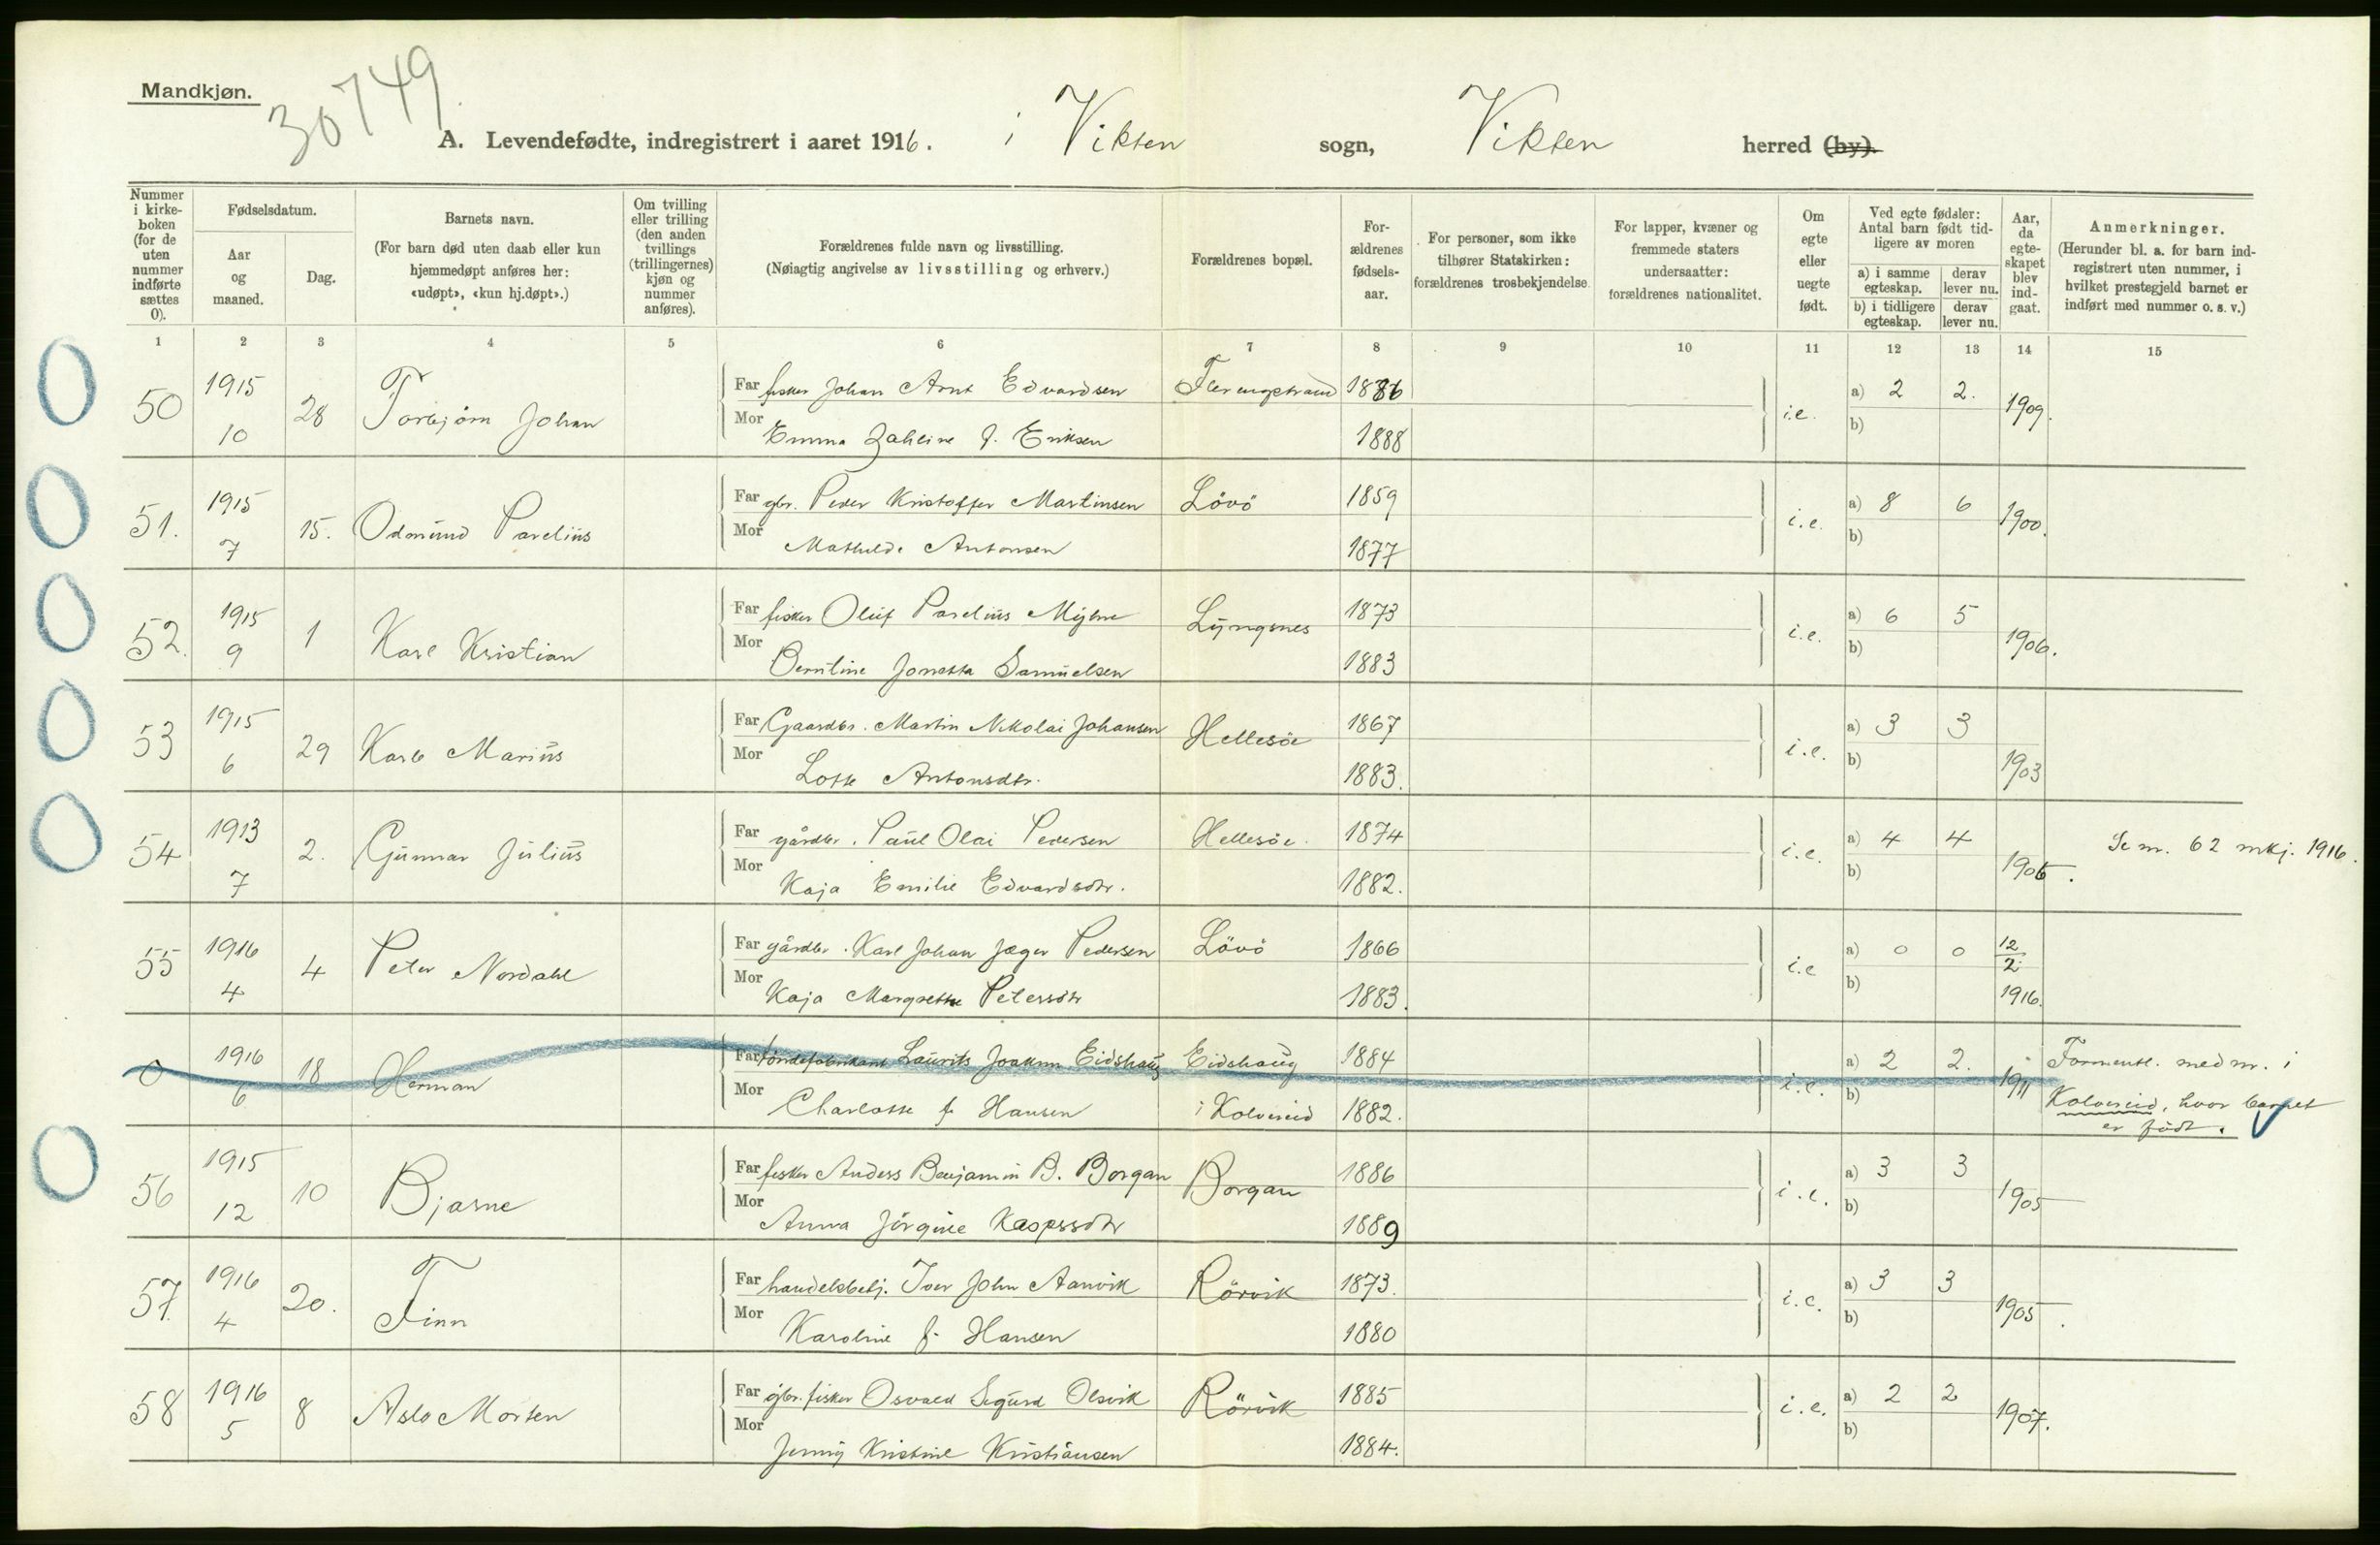 Mandkjøn.
30749
A. Levendefødte, indregistrert i aaret 1916. i Vikten sogn, Vikten herred (by).
Nummer i kirke-boken (for de uten nummer indførte sættes 0).
Fødselsdatum.
Aar og maaned.
Dag.
Barnets navn.
(For barn død uten daab eller kun hjemmedøpt anføres her: «udøpt», «kun hj.døpt».)
Om tvilling eller trilling (den anden tvillings (trillingernes) kjøn og nummer anføres).
Forældrenes fulde navn og livsstilling.
(Nøiagtig angivelse av livsstilling og erhverv.)
Forældrenes bopæl.
For-ældrenes fødsels-aar.
For personer, som ikke tilhører Statskirken: forældrenes trosbekjendelse.
For lapper, kvæner og fremmede staters undersaatter: forældrenes nationalitet.
Om egte eller uegte født.
Ved egte fødsler: Antal barn født tid-ligere av moren
a) i samme egteskap.
derav lever nu.
b) i tidligere egteskap.
derav lever nu.
Aar, da egte-skapet blev ind-gaat.
Anmerkninger.
(Herunder bl. a. for barn ind-registrert uten nummer, i hvilket prestegjeld barnet er indført med nummer o. s. v.)
1 2 3 4 5 6 7 8 9 10 11 12 13 14 15
50 1915 10 28 Torbjørn Johan Far fisker Johan Arnt Edvardsen 1886 i.e. a) 2 2. 1909.
Mor Emma Zahline f. Eriksen 1888 b)
51. 1915 7 15. Odmund Parelius Far gbr. Peder Kristoffer Martinsen Lövö 1859 i.e. a) 8 6 1900.
Mor Mathilde Antonsen 1877 b)
52. 1915 9 1 Karl Kristian Far fisker Oluf Parelius Myhre Lyngsnes 1873 i.e. a) 6 5 1906.
Mor Berntine Jonetta Samuelsen 1883 b)
53 1915 6 29 Karlo Marius Far Gaardbr. Martin Nikolai Johansen Hellesöe 1867 i.e. a) 3 3 1903
Mor Lotte Antonsdtr. 1883. b)
54 1913 7 2. Gunnar Julius Far gårdbr. Paul Olai Pedersen Hellesöe. 1874 i.e. a) 4 4 1906. Se nr. 62 mkj. 1916.
Mor Kaja Emilie Edvardsdtr. 1882. b)
55 1916 4 4 Peter Nordahl Far gårdbr. Karl Johan Jæger Pedersen Lövö 1866 i.e a) 0 0 12/2 1916.
Mor Kaja Margrethe Petersdtr 1883. b)
0 1916 6 18 Herman Far töndefabrikant Laurits Joakim Eidshaug Eidshaug 1884 i.e. a) 2 2. 1911 Formentl. med nr. i
Mor Charlotte f. Hansen i Kolvereid 1882. b) Kolvereid, hvor barnet
er födt.
56 1915 12 10 Bjarne Far fisker Anders Benjamin B. Borgan Borgan 1886 i.e. a) 3 3 1905
Mor Anna Jörgine Kaspersdtr 1889 b)
57. 1916 4 20. Finn Far handelsbetj. Iver John Aanvik Rörvik 1873. i.e. a) 3 3 1905.
Mor Karoline f. Hansen 1880 b)
58 1916 5 8 Aslo Morten Far gbr. fisker Osvald Sigurd Olsvik Rörvik 1885 i.e. a) 2 2 1907.
Mor Jenny Kristine Kristiansen 1884. b)